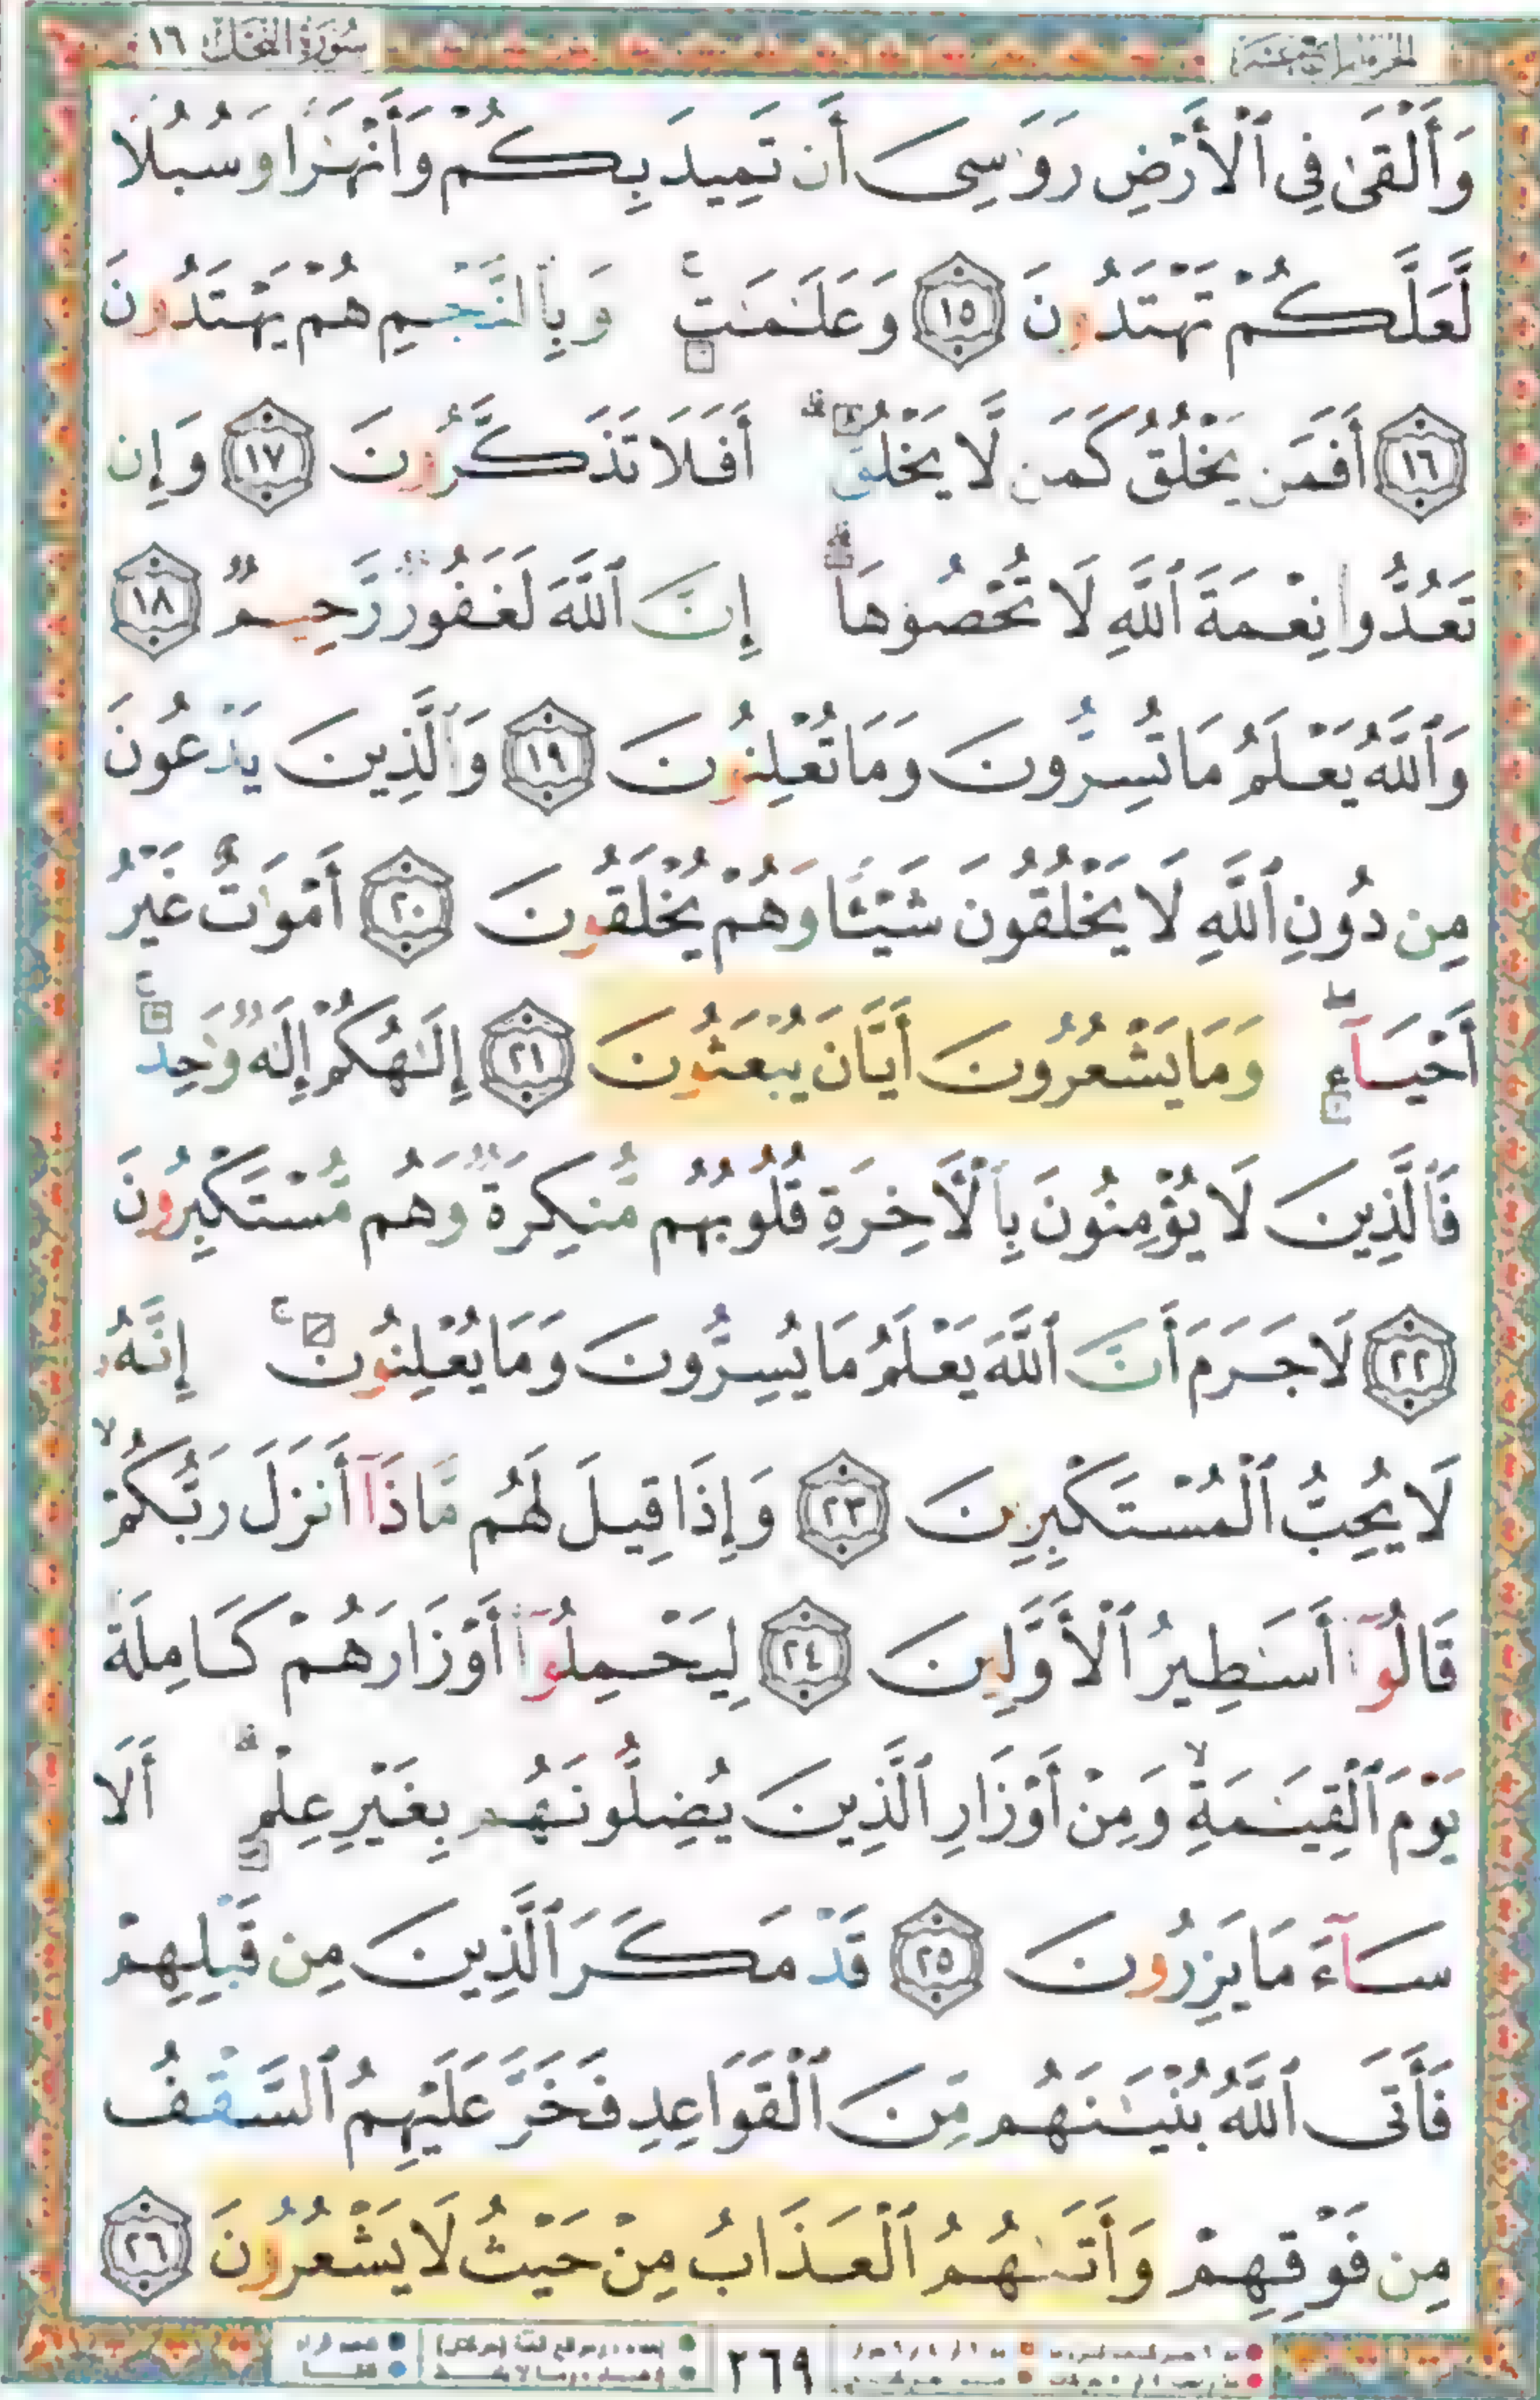 سُورَةُ النَّحْلِ ١٦
وَأَلْقَىٰ فِي ٱلْأَرْضِ رَوَٰسِىَ أَن تَمِيدَ بِكُمْ وَأَنْهَٰرًا وَسُبُلًا
لَّعَلَّكُمْ تَهْتَدُونَ ١٥ وَعَلَٰمَٰتٍ ۚ وَبِٱلنَّجْمِ هُمْ يَهْتَدُونَ
١٦ أَفَمَن يَخْلُقُ كَمَن لَّا يَخْلُقُ ۗ أَفَلَا تَذَكَّرُونَ ١٧ وَإِن
تَعُدُّوا۟ نِعْمَةَ ٱللَّهِ لَا تُحْصُوهَآ ۗ إِنَّ ٱللَّهَ لَغَفُورٌ رَّحِيمٌ ١٨
وَٱللَّهُ يَعْلَمُ مَا تُسِرُّونَ وَمَا تُعْلِنُونَ ١٩ وَٱلَّذِينَ يَدْعُونَ
مِن دُونِ ٱللَّهِ لَا يَخْلُقُونَ شَيْـًٔا وَهُمْ يُخْلَقُونَ ٢٠ أَمْوَٰتٌ غَيْرُ
أَحْيَآءٍ ۖ وَمَا يَشْعُرُونَ أَيَّانَ يُبْعَثُونَ ٢١ إِلَٰهُكُمْ إِلَٰهٌ وَٰحِدٌ ۚ
فَٱلَّذِينَ لَا يُؤْمِنُونَ بِٱلْـَٔاخِرَةِ قُلُوبُهُم مُّنكِرَةٌ وَهُم مُّسْتَكْبِرُونَ
٢٢ لَا جَرَمَ أَنَّ ٱللَّهَ يَعْلَمُ مَا يُسِرُّونَ وَمَا يُعْلِنُونَ ۚ إِنَّهُۥ
لَا يُحِبُّ ٱلْمُسْتَكْبِرِينَ ٢٣ وَإِذَا قِيلَ لَهُم مَّاذَآ أَنزَلَ رَبُّكُمْ ۙ
قَالُوٓا۟ أَسَٰطِيرُ ٱلْأَوَّلِينَ ٢٤ لِيَحْمِلُوٓا۟ أَوْزَارَهُمْ كَامِلَةً
يَوْمَ ٱلْقِيَٰمَةِ ۙ وَمِنْ أَوْزَارِ ٱلَّذِينَ يُضِلُّونَهُم بِغَيْرِ عِلْمٍ ۗ أَلَا
سَآءَ مَا يَزِرُونَ ٢٥ قَدْ مَكَرَ ٱلَّذِينَ مِن قَبْلِهِمْ
فَأَتَى ٱللَّهُ بُنْيَٰنَهُم مِّنَ ٱلْقَوَاعِدِ فَخَرَّ عَلَيْهِمُ ٱلسَّقْفُ
مِن فَوْقِهِمْ وَأَتَىٰهُمُ ٱلْعَذَابُ مِنْ حَيْثُ لَا يَشْعُرُونَ ٢٦
٢٦٩